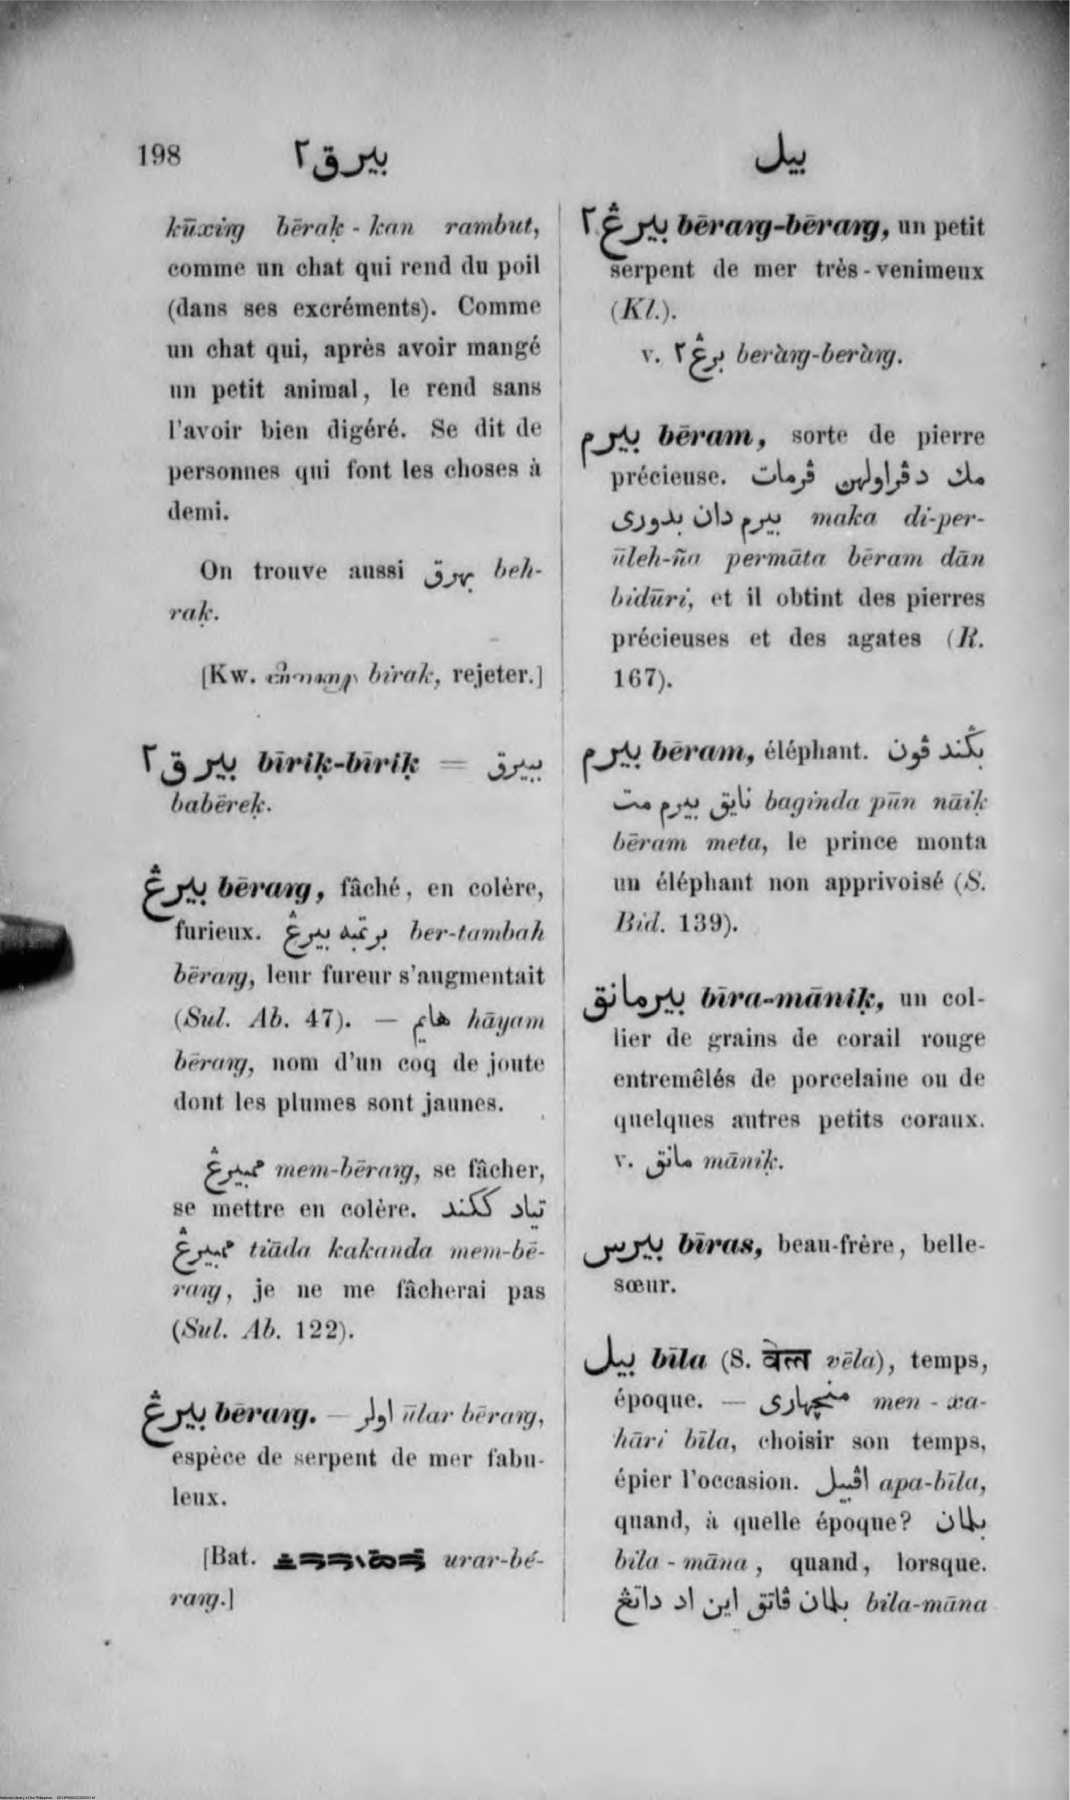 198 بيرق٢ بيل
kūxiṅg bēraḳ-kan rambut,
comme un chat qui rend du poil
(dans ses excréments). Comme
un chat qui, après avoir mangé
un petit animal, le rend sans
l'avoir bien digéré. Se dit de
personnes qui font les choses à
demi.
On trouve aussi بهرق beh-
raḳ.
[Kw. birak, rejeter.]
بيرق٢ bīriḳ-bīriḳ = ببيرق
babēreḳ.
بيرڠ bēraṅg, fâché, en colère,
furieux. برتمبه بيرڠ ber-tambah
bēraṅg, leur fureur s'augmentait
(Sul. Ab. 47). — هايم hāyam
bēraṅg, nom d'un coq de joute
dont les plumes sont jaunes.
ممبيرڠ mem-bēraṅg, se fâcher,
se mettre en colère. تياد ككند
ممبيرڠ tiāda kakanda mem-bē-
raṅg, je ne me fâcherai pas
(Sul. Ab. 122).
بيرڠ bēraṅg. — اولر ūlar bēraṅg,
espèce de serpent de mer fabu-
leux.
[Bat. urar-bé-
raṅg.]
بيرڠ٢ bēraṅg-bēraṅg, un petit
serpent de mer très-venimeux
(Kl.).
v. برڠ٢ beràṅg-beràṅg.
بيرم bēram, sorte de pierre
précieuse. مك دڤراولهن ڤرمات
بيرم دان بدوري maka di-per-
ūleh-ña permāta bēram dān
bidūri, et il obtint des pierres
précieuses et des agates (R.
167).
بيرم bēram, éléphant. بڬند ڤون
نايق بيرم مت baginda pūn nāiḳ
bēram meta, le prince monta
un éléphant non apprivoisé (S.
Bid. 139).
بيرمانق bīra-māniḳ, un col-
lier de grains de corail rouge
entremêlés de porcelaine ou de
quelques autres petits coraux.
v. مانق māniḳ.
بيرس bīras, beau-frère, belle-
sœur.
بيل bīla (S. वेला vēla), temps,
époque. — منچهاري men-xa-
hāri bīla, choisir son temps,
épier l'occasion. اڤبيل apa-bīla,
quand, à quelle époque? بلمان
bila-māna, quand, lorsque.
بلمان ڤاتق اين اد داتڠ bila-māna